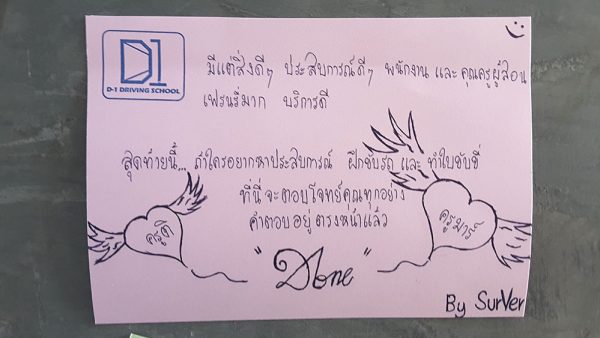 D1
D-1 DRIVING SCHOOL
มีแต่สิ่งดีๆ ประสบการณ์ดีๆ พนักงาน และ คุณครูผู้สอน
เฟรนรี่มาก บริการดี
สุดท้ายนี้... ถ้าใครอยากหาประสบการณ์ ฝึกขับรถ และ ทำใบขับขี่
ที่นี่ จะตอบโจทย์คุณทุกอย่าง
คำตอบอยู่ตรงหน้าแล้ว
ครูติ
ครูมาร์
"Done"
By SurVer